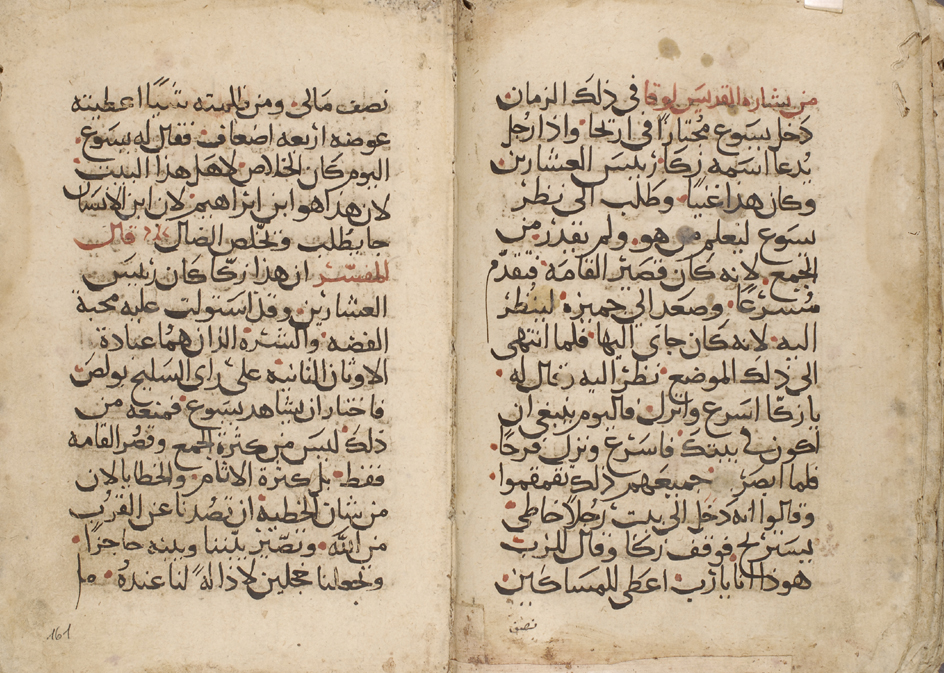 من بشارة القديس لوقا في ذلك الزمان
دخل يسوع مجتازا في اريحا واذا رجل
يدعا اسمه زكا رئيس العشارين
وكان هذا غنيا وطلب الى نظر
يسوع ليعلم من هو ولم يقدر من
الجمع لانه كان قصير القامة فتقدم
مسرعا وصعد الى جميزه لينظر
اليه لانه كان جاي اليها فلما انتهى
الى ذلك الموضع نظر اليه وقال له
يا زكا اسرع وانزل فاليوم ينبغي ان
اكون في بيتك فاسرع ونزل فرحا
فلما ابصر جميعهم ذلك تقمقموا
وقالوا انه دخل الى بيت رجلا خاطي
يستريح فوقف زكا وقال للرب
هوذا انا يا رب اعطي للمساكين
نصف
نصف مالي ومن ظلمته شيا اعطيته
عوضه اربعه اضعاف فقال له يسوع
اليوم كان الخلاص لاهل هذا البيت
لان هذا هو ابن ابراهيم لان ابن الانسان
جا يطلب ويخلص الضال قال
المفسر ان هذا زكا كان رئيس
العشارين وقد استولت عليه محبة
الفضه والشره الذان هما عبادة
الاوثان الثانيه على راي السليح بولص
فاختار ان يشاهد يسوع فمنعه من
ذلك ليس من كثرة الجمع وقصر القامه
فقط بل كثرة الاثام والخطايا لان
من شان الخطية ان تصدنا عن القرب
من الله وتصير بيننا وبينه حاجزا
وتجعلنا خجلين لا دالة لنا عنده
161